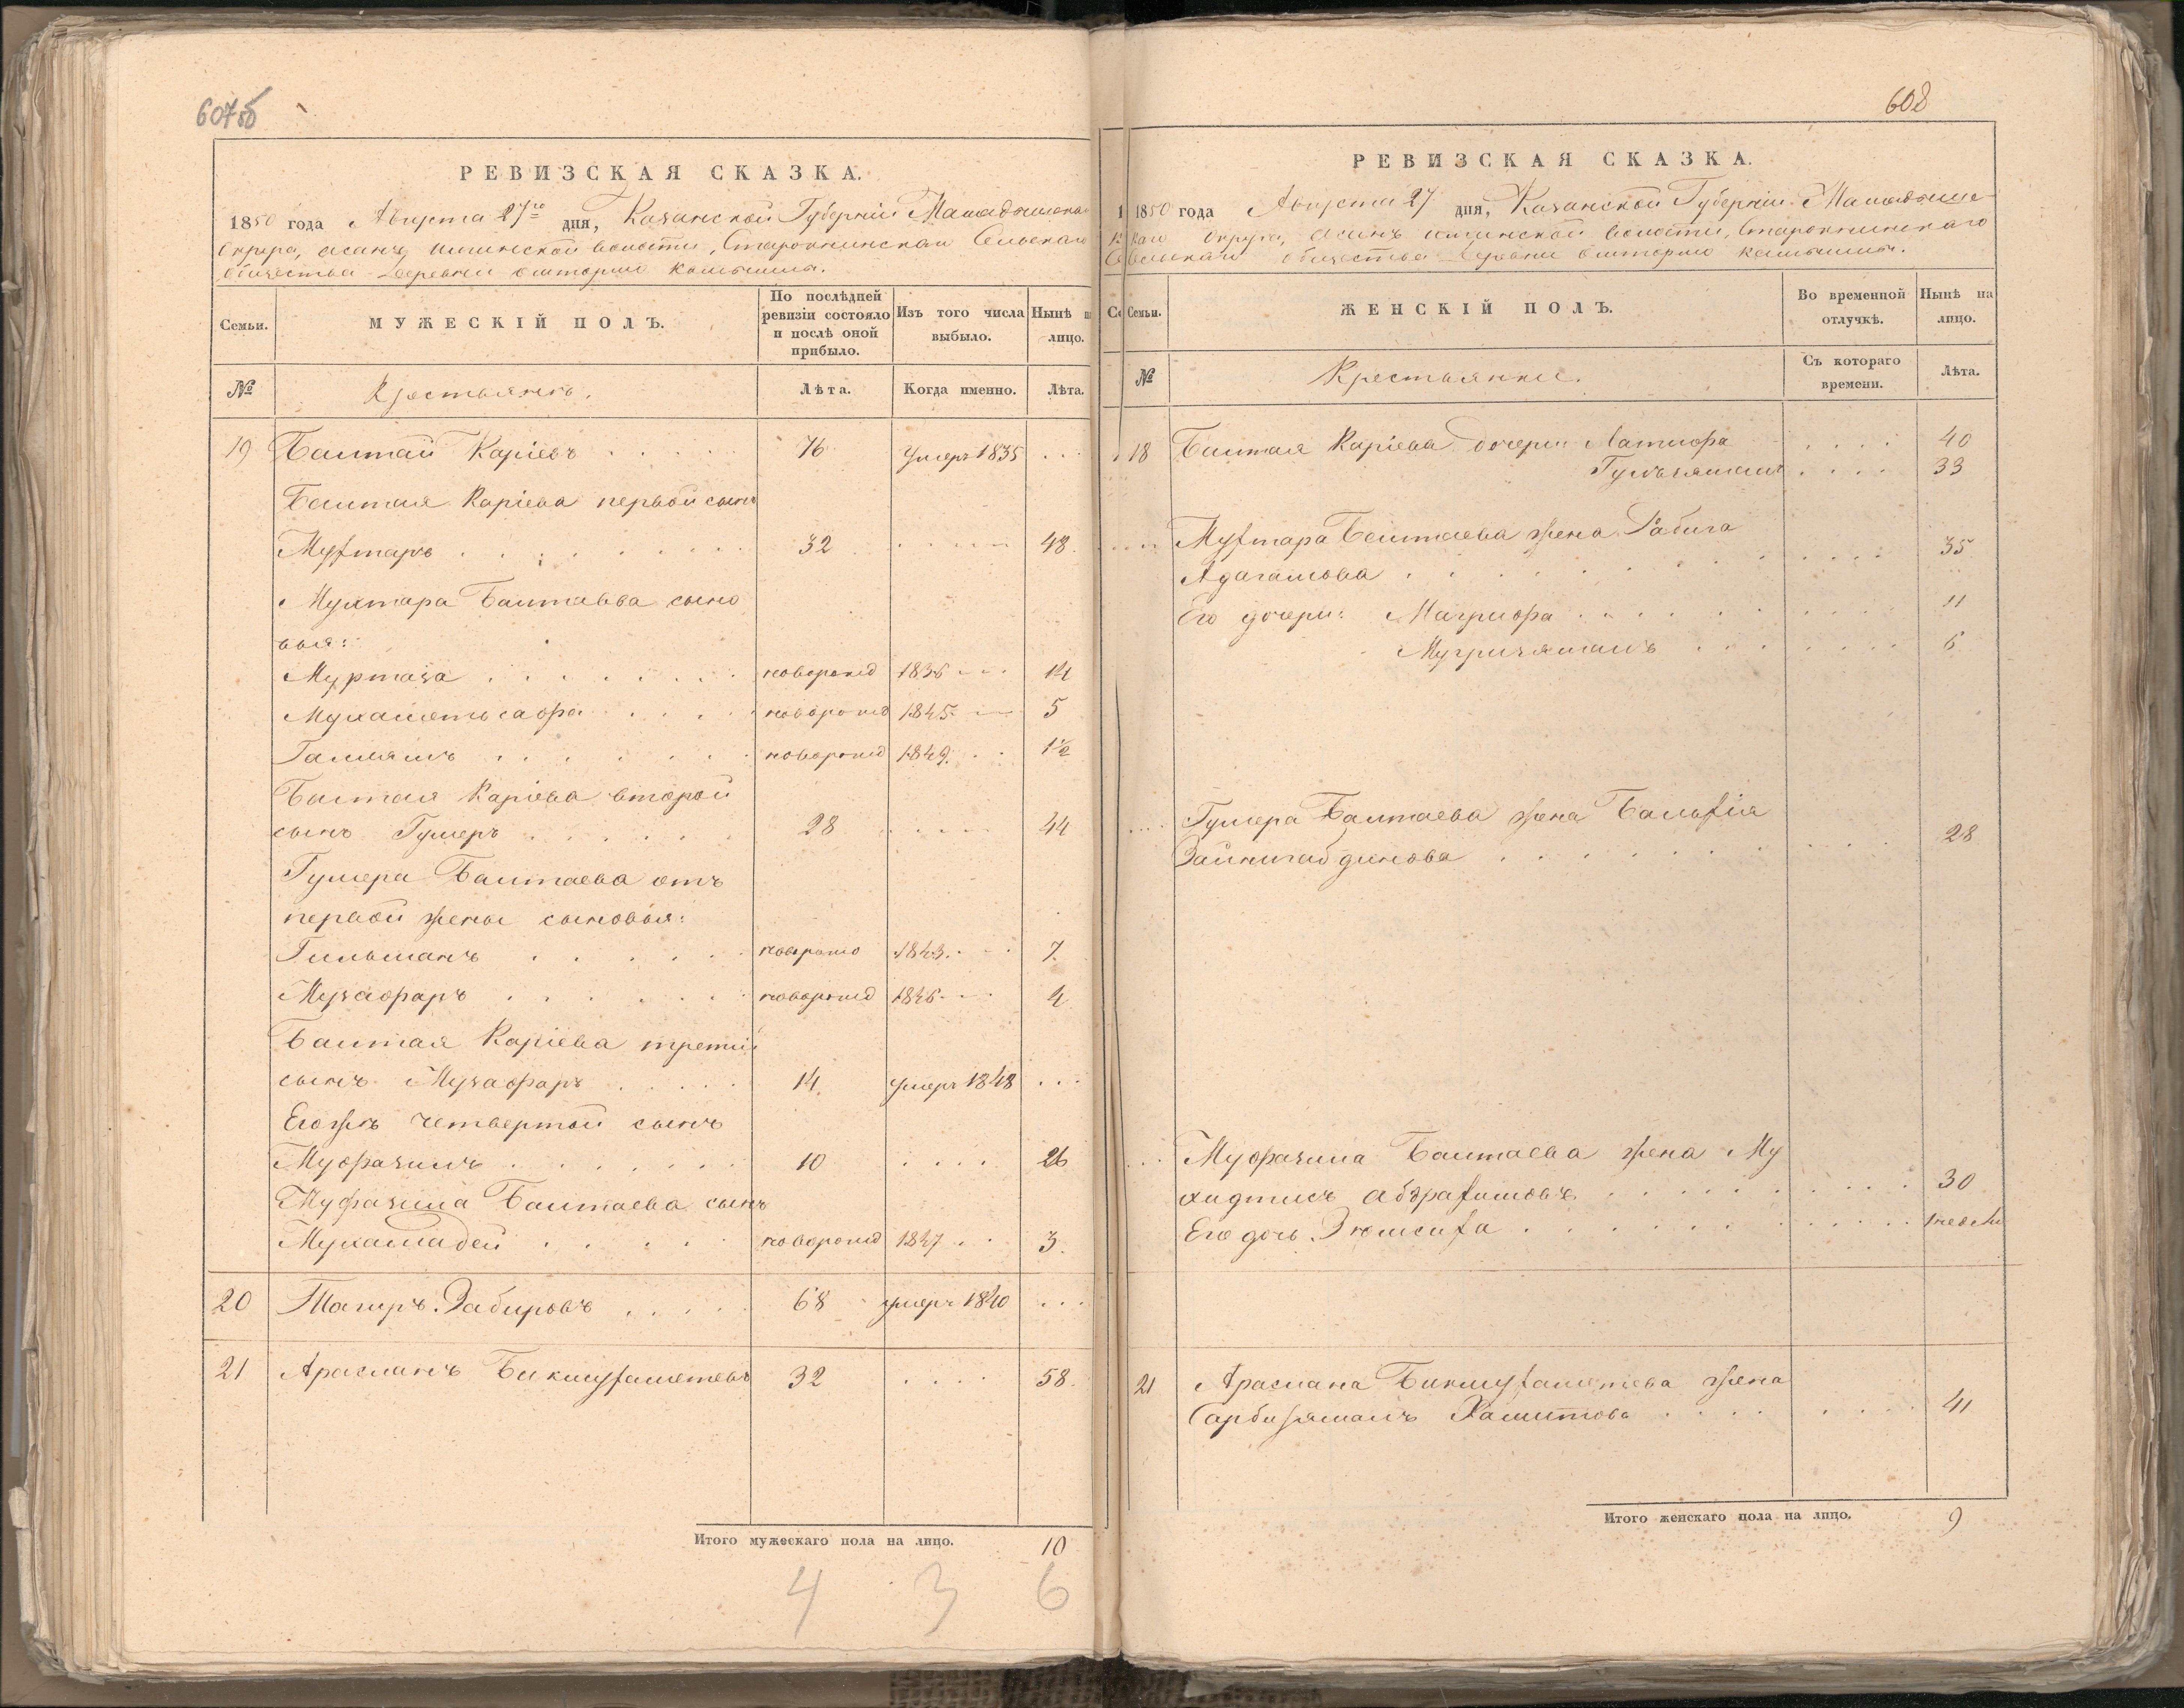 607об
РЕВИЗСКАЯ СКАЗКА.
1850 года Августа 27го дня, Казанской Губерніи Мамадышска
Округа, Сельскаго
общества Деревни
Семьи.
МУЖЕСКІЙ ПОЛЪ.
По послѣдней ревизіи состояло и послѣ оной прибыло.
Изъ того числа выбыло.
Нынѣ на лицо.
№
Крестьянъ.
Лѣта.
Когда именно.
Лѣта.
19 Баитай Каріевъ 76 Умеръ 1835
Баитая Каріева первой сынъ
Мухтаръ 32 48
Мухтара Баитаева сыно
вья:
Муртаза новорожд 1836 14
Мухаметьсафа новорожд 1845 5
Галлямъ новорожд 1849 1½
Баитая Каріева второй
сынъ Гумеръ 28 44
Гумера Баитаева отъ
первой жены сыновья:
Гильманъ новорожд 1843 7
Музафаръ новорожд 1846 4
Баитая Каріева третій
сынъ Музафаръ 14 умеръ 1848
Егожъ четвертой сынъ
Муфазилъ 10 26
Муфазила Баитаева сынъ
Мухамадей новорожд 1847 3
20 Тагиръ Забировъ 68 умеръ 1840
21 Арасланъ Бикмухаметевъ 32 58
Итого мужескаго пола на лицо. 10
4 3 6
608
РЕВИЗСКАЯ СКАЗКА.
1850 года Августа 27 дня, Казанской Губерніи Мамадыш
скаго Округа, волости,
Сельскаго общества Деревни
Семьи.
ЖЕНСКІЙ ПОЛЪ.
Во временной отлучкѣ.
Нынѣ на лицо.
№
Крестьянки.
Съ котораго времени.
Лѣта.
18 Баитая Каріева дочери Латифа 40
33
Мухтара Баитаева жена Рабига
Адагамова 35
Его дочери: Магрифа 11
6
Гумера Баитаева жена
Зайнигабдинова 28
Муфазила Баитаева жена Му
30
Его дочь
21 Араслана Бикмухаметева жена
Хамитова 41
Итого женскаго пола на лицо. 9